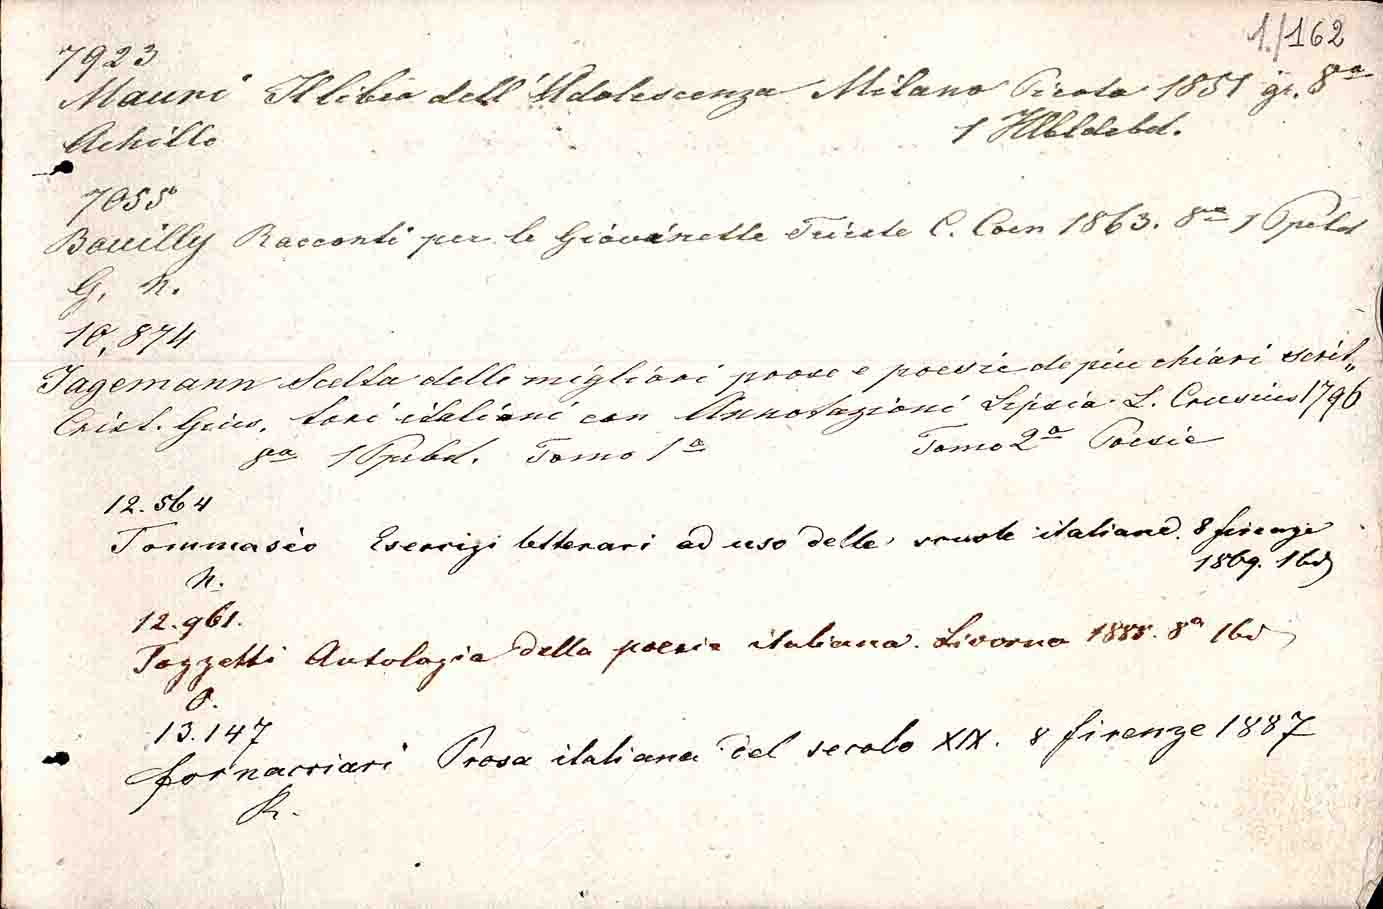 1./162
7923
Mauri Il libro dell'Adolescenza Milano Pirota 1851 gr. 8va
Achille 1 Hlbldbd.
7055
Bouilly Racconti per le Giovinette Trieste C. Coen 1863. 8va 1 Ppbd
G. N.
10,874
Jagemann Scelta delle migliori prose e poesie de piu chiari scrit„
Crist. Gius. tori italiani con Annotazioni Lipsia L. Crusius 1796
8va 1 Ppbd. Tomo 1a Tomo 2a Poesie
12.564
Tommaséo Esercizi letterari ad uso delle scuole italiane. 8 firenze
N. 1869. 1bd
12.961.
Tozzetti Antologia della poesia italiana. Livorno 1885. 8a 1bd
O.
13.147
fornacciari Prosa italiana del secolo XIX. 8 firenze 1887
R.